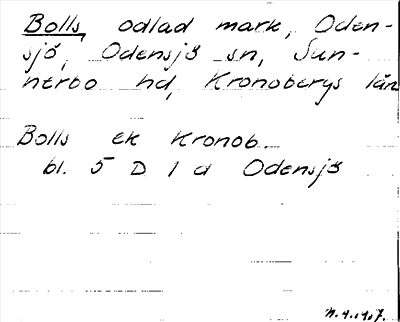 Bolls, odlad mark, Oden-
sjö, Odensjö sn, Sun-
nerbo hd, Kronobergs län
Bolls ek Kronob.
bl. 5 D 1 d Odensjö